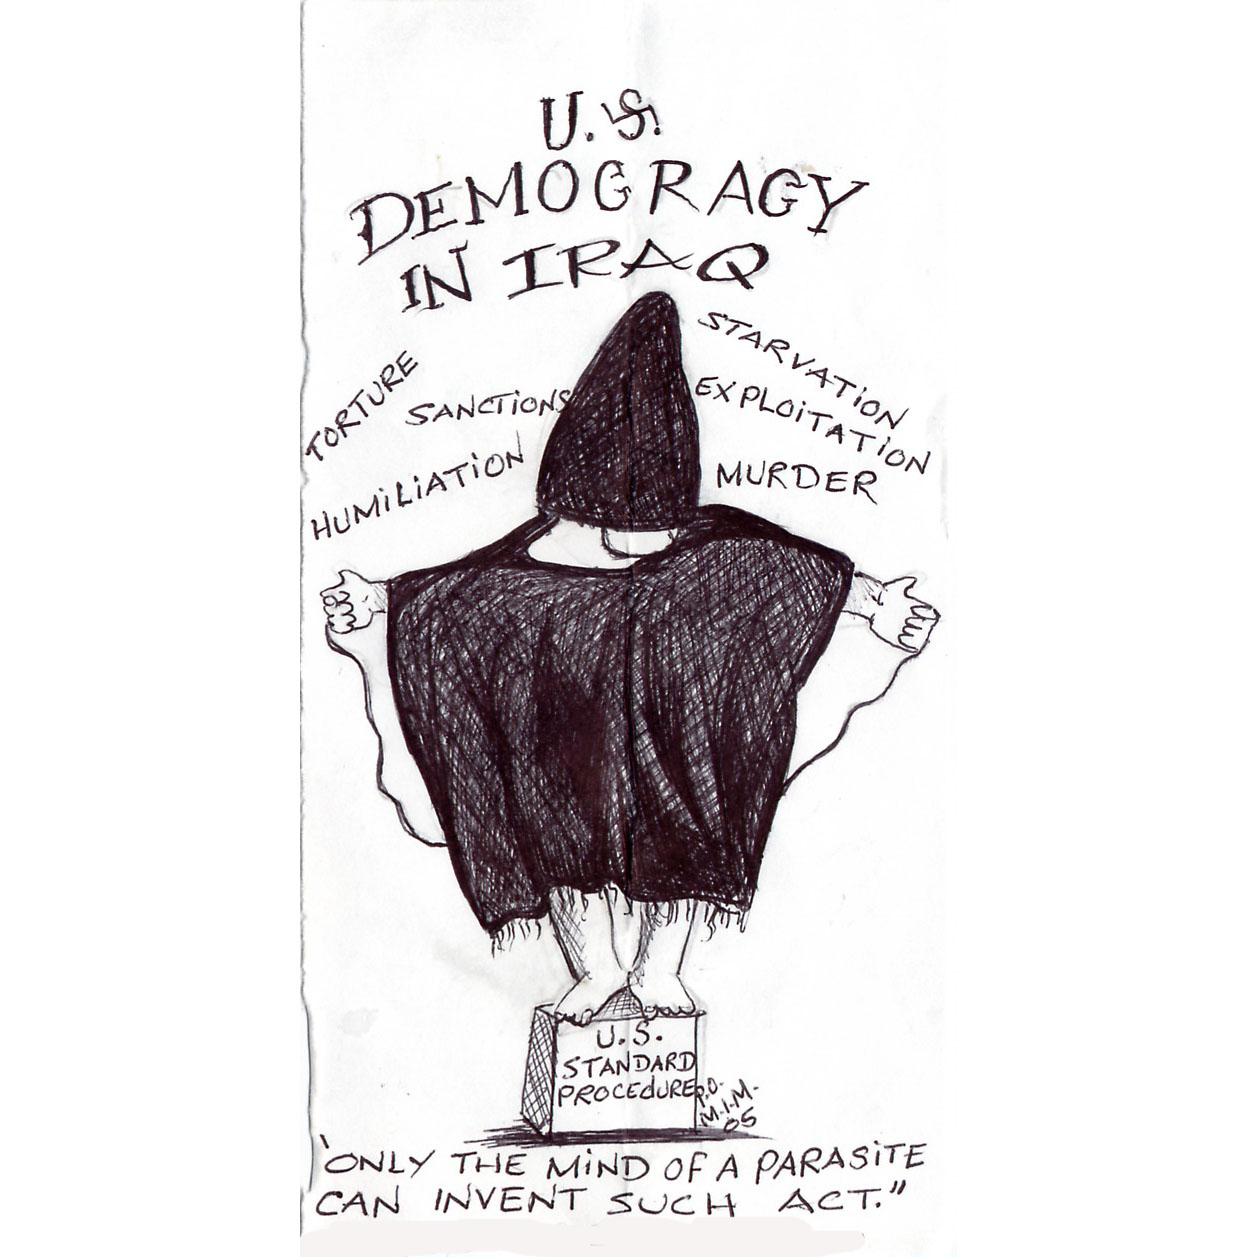 U.S.
DEMOCRACY
IN IRAQ
TORTURE
SANCTIONS
HUMILIATION
STARVATION
EXPLOITATION
MURDER
U.S.
STANDARD
PROCEDURE
P.O.
M.I.M.
'05
'ONLY THE MIND OF A PARASITE
CAN INVENT SUCH ACT."